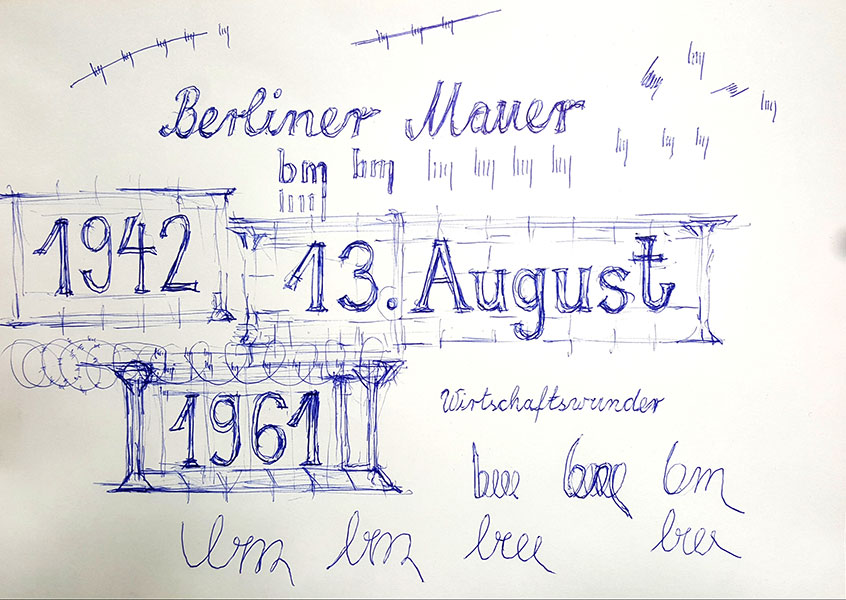 Berliner Mauer
bm bm
1942
13. August
1961
Wirtschaftswunder
bm